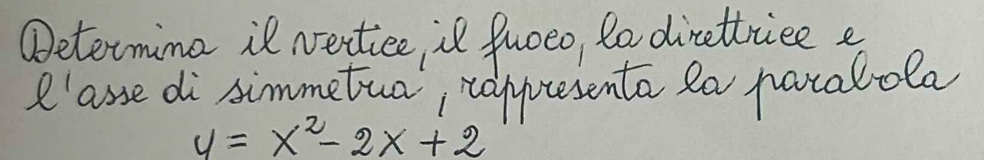 Determina il vertice, il fuoco, la direttrice e
l'asse di simmetria, rappresenta la parabola
y = x² - 2x + 2